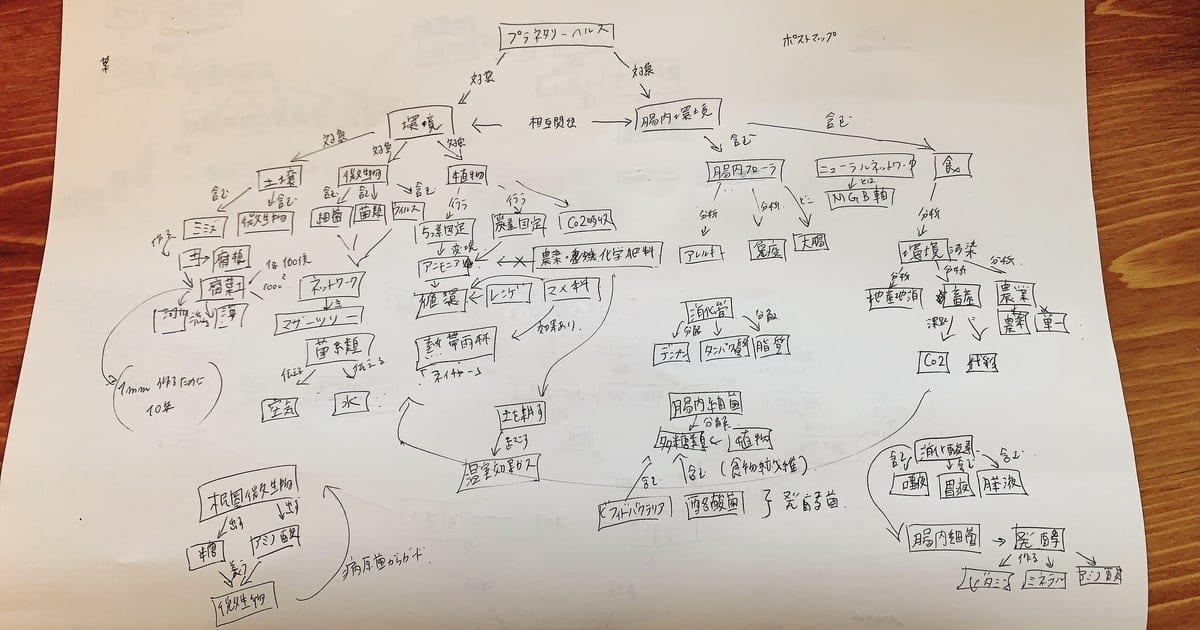 プラネタリーヘルス
ポストマップ
対象
対象
環境
相互関係
腸内環境
対象
対象
対象
含む
含む
土壌
微生物
植物
腸内フローラ
ニューラルネットワーク
食
とは
MGB軸
含む
含む
含む
含む
含む
行う
行う
ミミズ
微生物
細菌
菌類
ウイルス
ちっ素固定
炭素固定
Co2
分析
分析
どこ
分析
作る
変換
アンモニア
農薬・
化学肥料
アレルギー
免疫
大腸
環境汚染
腐植
腐葉土
ネットワーク
植
レンゲ
マメ科
分析
分析
分析
地産地消
畜産
農業
農薬
単一
マザーツリー
消化管
分解
分解
デンプン
タンパク質
脂質
菌糸類
熱帯雨林
効果あり
Co2
伝える
伝える
空気
水
1mm 作るために
10年
土を耕す
起こす
温室効果ガス
腸内細菌
分解
多糖類
植物
含む
含む
(食物繊維)
ビフィドバクテリア
酪酸菌
発酵菌
消化酵素
含む
含む
含む
唾液
胃液
膵液
根圏微生物
出す
出す
糖
アミノ酸
微生物
病原菌からガード
腸内細菌
発酵
作る
ビタミン
ミネラル
アミノ酸